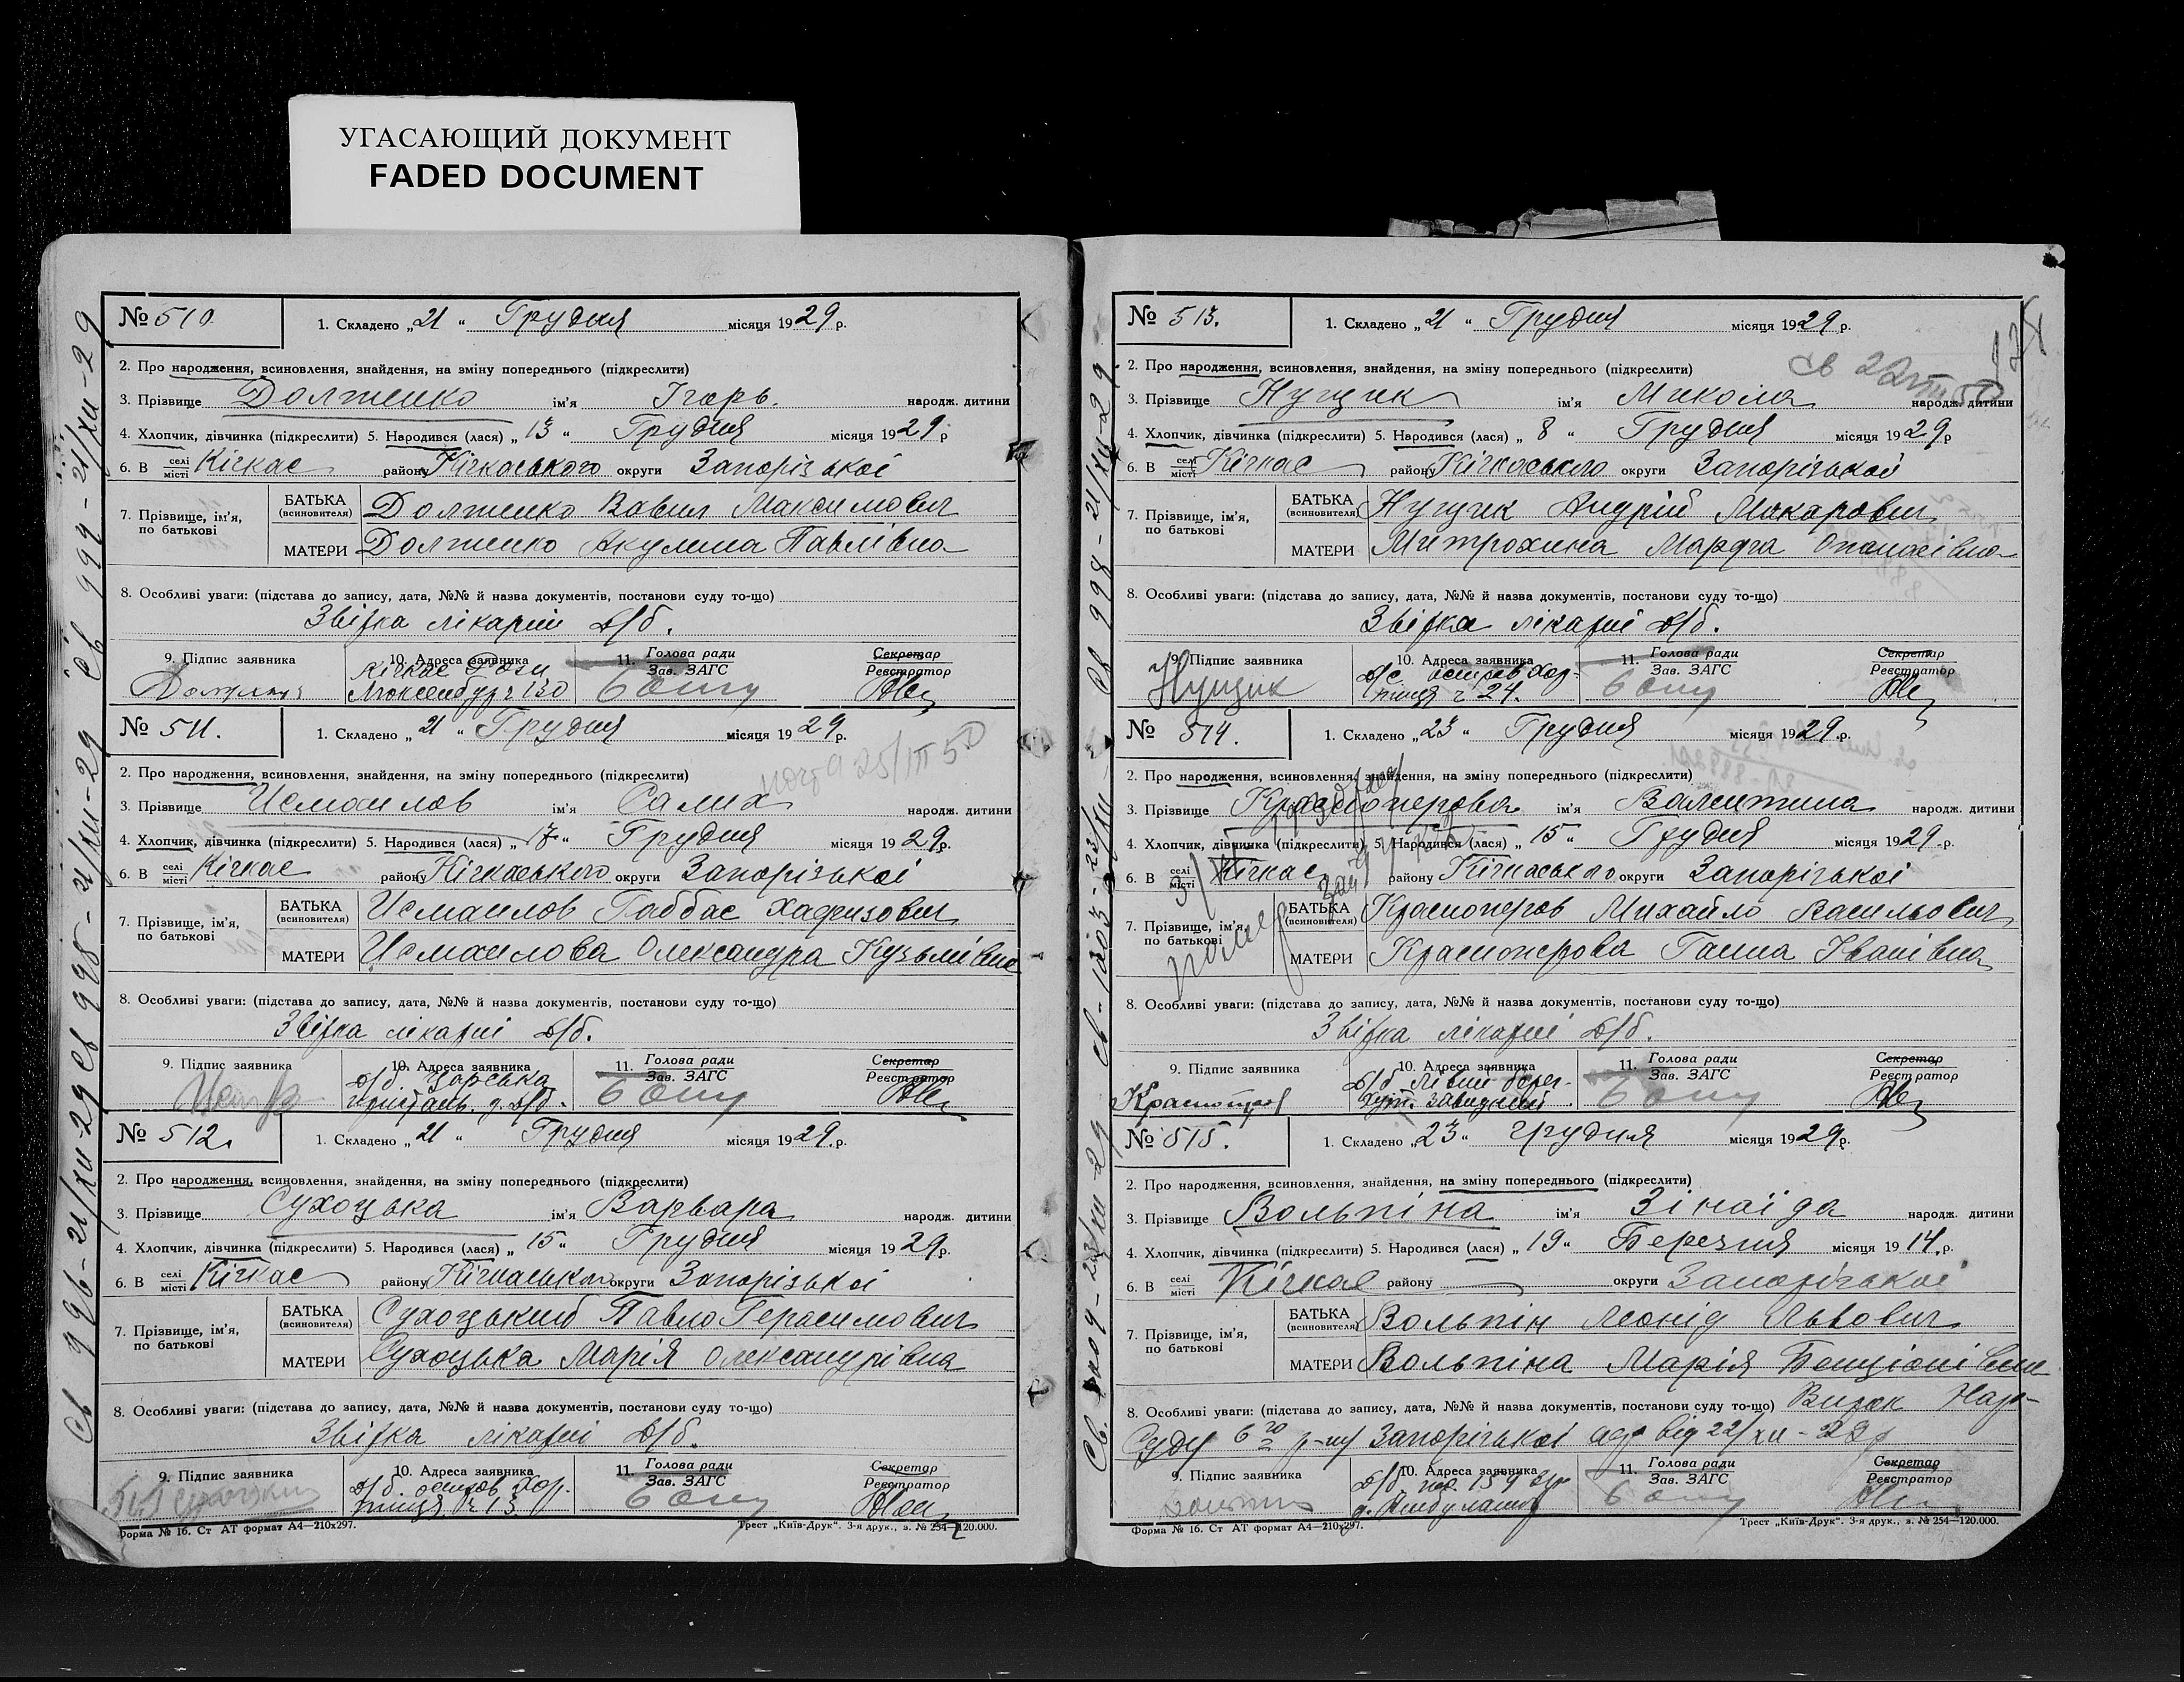 УГАСАЮЩИЙ ДОКУМЕНТ
FADED DOCUMENT
№ 510.
1. Складено „21“ Грудня місяця 1929 р.
2. Про народження, всиновлення, знайдення, на зміну попереднього (підкреслити)
3. Прізвище Долженко ім'я Ігорь. народж. дитини
4. Хлопчик, дівчинка (підкреслити) 5. Народився (лася) „13“ Грудня місяця 1929 р
6. В селі місті Кічкас району Кічкаського округи Запорізької
7. Прізвище, ім'я, по батькові
БАТЬКА (всиновителя) Долженко Вавил Максимович
МАТЕРИ Долженко Акулина Павлівна
8. Особливі уваги: (підстава до запису, дата, №№ й назва документів, постанови суду то-що)
Звідка лікарні Д/б.
9. Підпис заявника
10. Адреса заявника Кічкас Рози Люксенбург 130
11. Голова ради Зав. ЗАГС
Секретар Реєстратор
№ 511.
1. Складено „21“ Грудня місяця 1929 р.
2. Про народження, всиновлення, знайдення, на зміну попереднього (підкреслити)
3. Прізвище Исмаилов ім'я Салих народж. дитини
4. Хлопчик, дівчинка (підкреслити) 5. Народився (лася) „17“ Грудня місяця 1929 р.
6. В селі місті Кічкас району Кічкаського округи Запорізької
7. Прізвище, ім'я, по батькові
БАТЬКА (всиновителя) Исмаилов Габбас Хафизович
МАТЕРИ Исмаилова Олександра Кузьмівна
8. Особливі уваги: (підстава до запису, дата, №№ й назва документів, постанови суду то-що)
Звідка лікарні Д/б.
9. Підпис заявника
10. Адреса заявника Д/б. Царська
11. Голова ради Зав. ЗАГС
Секретар Реєстратор
№ 512.
1. Складено „21“ Грудня місяця 1929 р.
2. Про народження, всиновлення, знайдення, на зміну попереднього (підкреслити)
3. Прізвище Сухоцька ім'я Варвара народж. дитини
4. Хлопчик, дівчинка (підкреслити) 5. Народився (лася) „15“ Грудня місяця 1929 р.
6. В селі місті Кічкас району Кічкаського округи Запорізької
7. Прізвище, ім'я, по батькові
БАТЬКА (всиновителя) Сухоцький Павло Герасимович
МАТЕРИ Сухоцька Марія Олександрівна
8. Особливі уваги: (підстава до запису, дата, №№ й назва документів, постанови суду то-що)
Звідка лікарні Д/б.
9. Підпис заявника
10. Адреса заявника Д/б. острів Хор-тиця № 13
11. Голова ради Зав. ЗАГС
Секретар Реєстратор
Форма № 16. Ст АТ формат А4—210х297.
Трест „Київ-Друк“. 3-я друк., з. № 254—120.000.
№ 513.
1. Складено „21“ Грудня місяця 1929 р.
2. Про народження, всиновления, знайдення, на зміну попереднього (підкреслити)
3. Прізвище Нущик ім'я Микола народж. дитини
4. Хлопчик, дівчинка (підкреслити) 5. Народився (лася) „8“ Грудня місяця 1929 р
6. В селі місті Кічкас району Кічкаського округи Запорізької
7. Прізвище, ім'я, по батькові
БАТЬКА (всиновителя) Нущик Андрій Макарович
МАТЕРИ Митрохина Марфа Опанасівна
8. Особливі уваги: (підстава до запису, дата, №№ й назва документів, постанови суду то-що)
Звідка лікарні Д/б.
9. Підпис заявника Нущик
10. Адреса заявника Д/с острів Хор-тиця № 24.
11. Голова ради Зав. ЗАГС
Секретар Реєстратор
№ 514.
1. Складено „23“ Грудня місяця 1929 р.
2. Про народження, всиновлення, знайдення, на зміну попереднього (підкреслити)
3. Прізвище Красноперова ім'я Валентина народж. дитини
4. Хлопчик, дівчинка (підкреслити) 5. Народився (лася) „15“ Грудня місяця 1929 р.
6. В селі місті Кічкас району Кічкаського округи Запорізької
7. Прізвище, ім'я, по батькові
БАТЬКА (всиновителя) Красноперов Михайло Васильович
МАТЕРИ Красноперова Ганна Іванівна
8. Особливі уваги: (підстава до запису, дата, №№ й назва документів, постанови суду то-що)
Звідка лікарні Д/б.
9. Підпис заявника
10. Адреса заявника Д/б Лівий берег
11. Голова ради Зав. ЗАГС
Секретар Реєстратор
№ 515.
1. Складено „23“ Грудня місяця 1929 р.
2. Про народження, всиновлення, знайдення, на зміну попереднього (підкреслити)
3. Прізвище Вольпіна ім'я Зінаїда народж. дитини
4. Хлопчик, дівчинка (підкреслити) 5. Народився (лася) „19“ Березня місяця 1914 р.
6. В селі місті Кічкас району — округи Запорізької
7. Прізвище, ім'я, по батькові
БАТЬКА (всиновителя) Вольпін Леонід Львович
МАТЕРИ Вольпіна Марія Бенціонівна
8. Особливі уваги: (підстава до запису, дата, №№ й назва документів, постанови суду то-що) Вирок Нар-
Суду 6го р-ну Запорізької від 22/XII-29р
9. Підпис заявника
10. Адреса заявника
11. Голова ради Зав. ЗАГС
Секретар Реєстратор
Форма № 16. Ст АТ формат А4—210х297.
Трест „Київ-Друк“. 3-я друк., з. № 254—120.000.